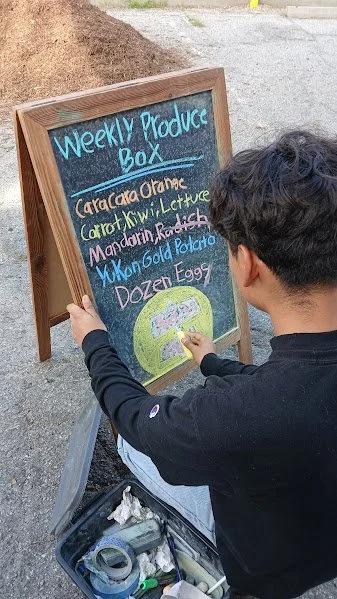 Weekly Produce
Box
Cara Cara Orange
Carrot, Kiwi, Lettuce
Mandarin, Radish
Yukon Gold Potato
Dozen Eggs